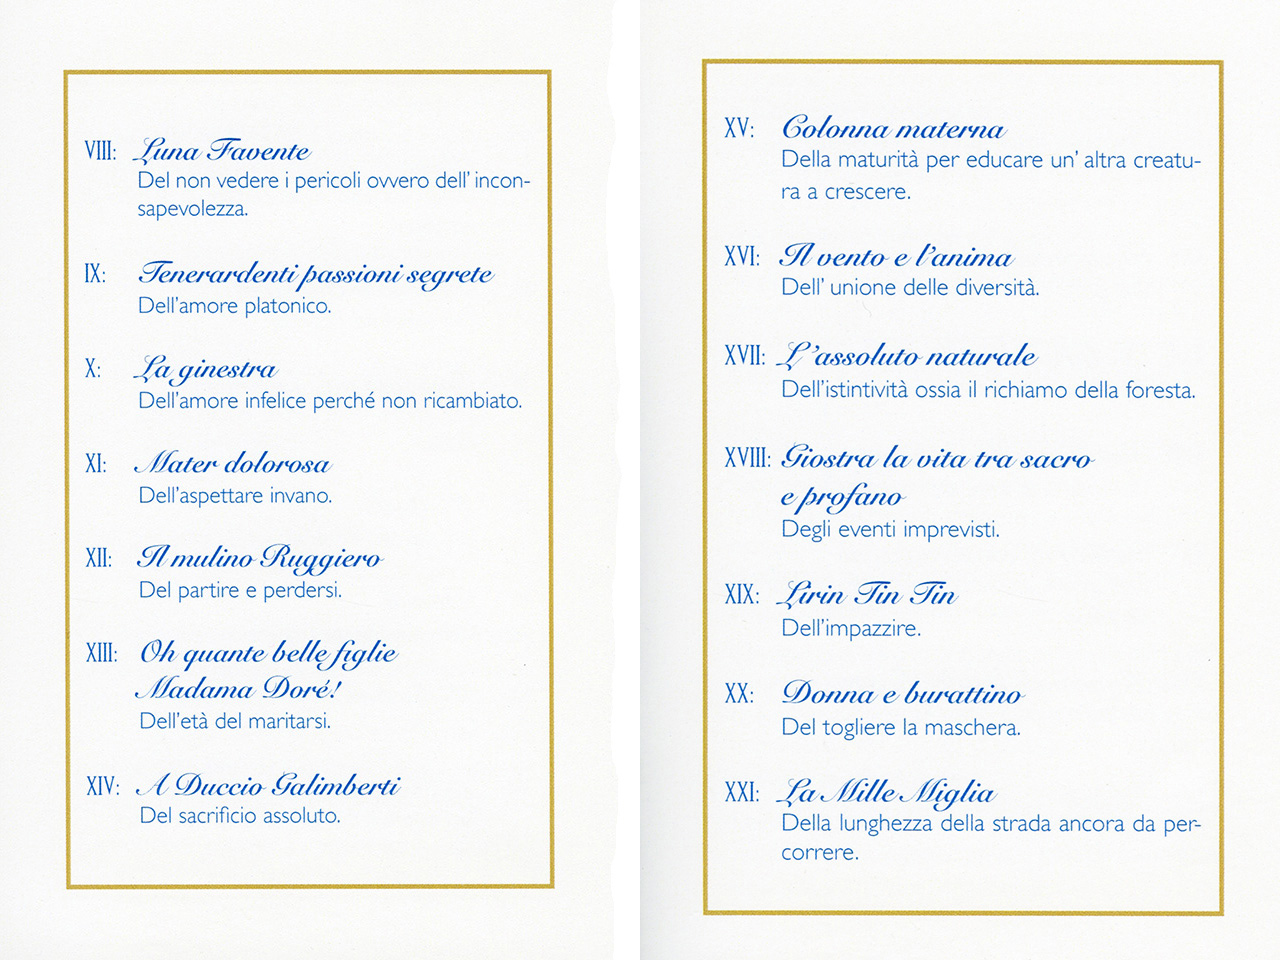 VIII: Luna Favente
Del non vedere i pericoli ovvero dell' incon-
sapevolezza.
IX: Tenerardenti passioni segrete
Dell'amore platonico.
X: La ginestra
Dell'amore infelice perché non ricambiato.
XI: Mater dolorosa
Dell'aspettare invano.
XII: Il mulino Ruggiero
Del partire e perdersi.
XIII: Oh quante belle figlie
Madama Doré!
Dell'età del maritarsi.
XIV: A Duccio Galimberti
Del sacrificio assoluto.
XV: Colonna materna
Della maturità per educare un' altra creatu-
ra a crescere.
XVI: Il vento e l'anima
Dell' unione delle diversità.
XVII: L'assoluto naturale
Dell'istintività ossia il richiamo della foresta.
XVIII: Giostra la vita tra sacro
e profano
Degli eventi imprevisti.
XIX: Lirin Tin Tin
Dell'impazzire.
XX: Donna e burattino
Del togliere la maschera.
XXI: La Mille Miglia
Della lunghezza della strada ancora da per-
correre.